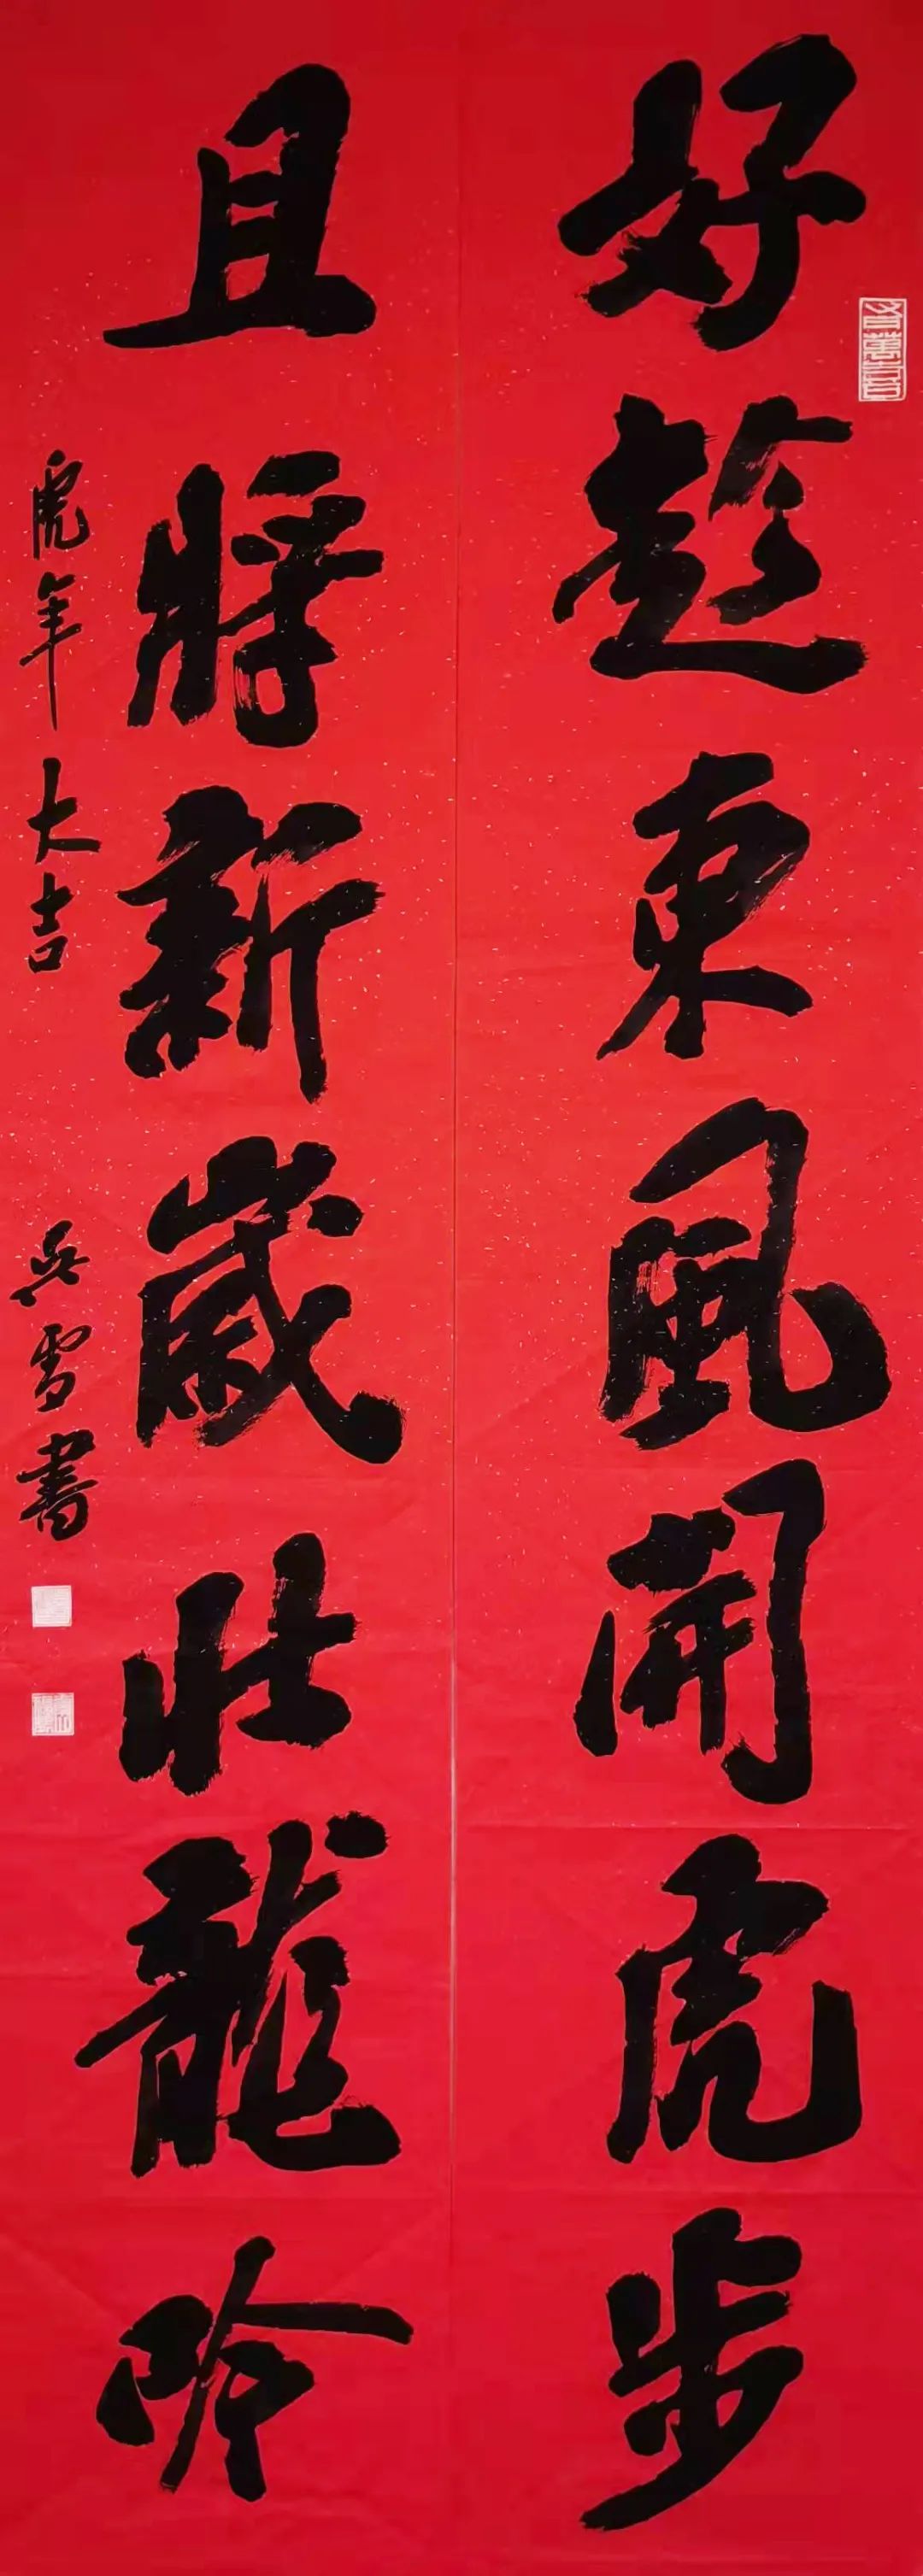 好趁東風開虎步
且將新歲壯龍吟
虎年大吉
吳雪書